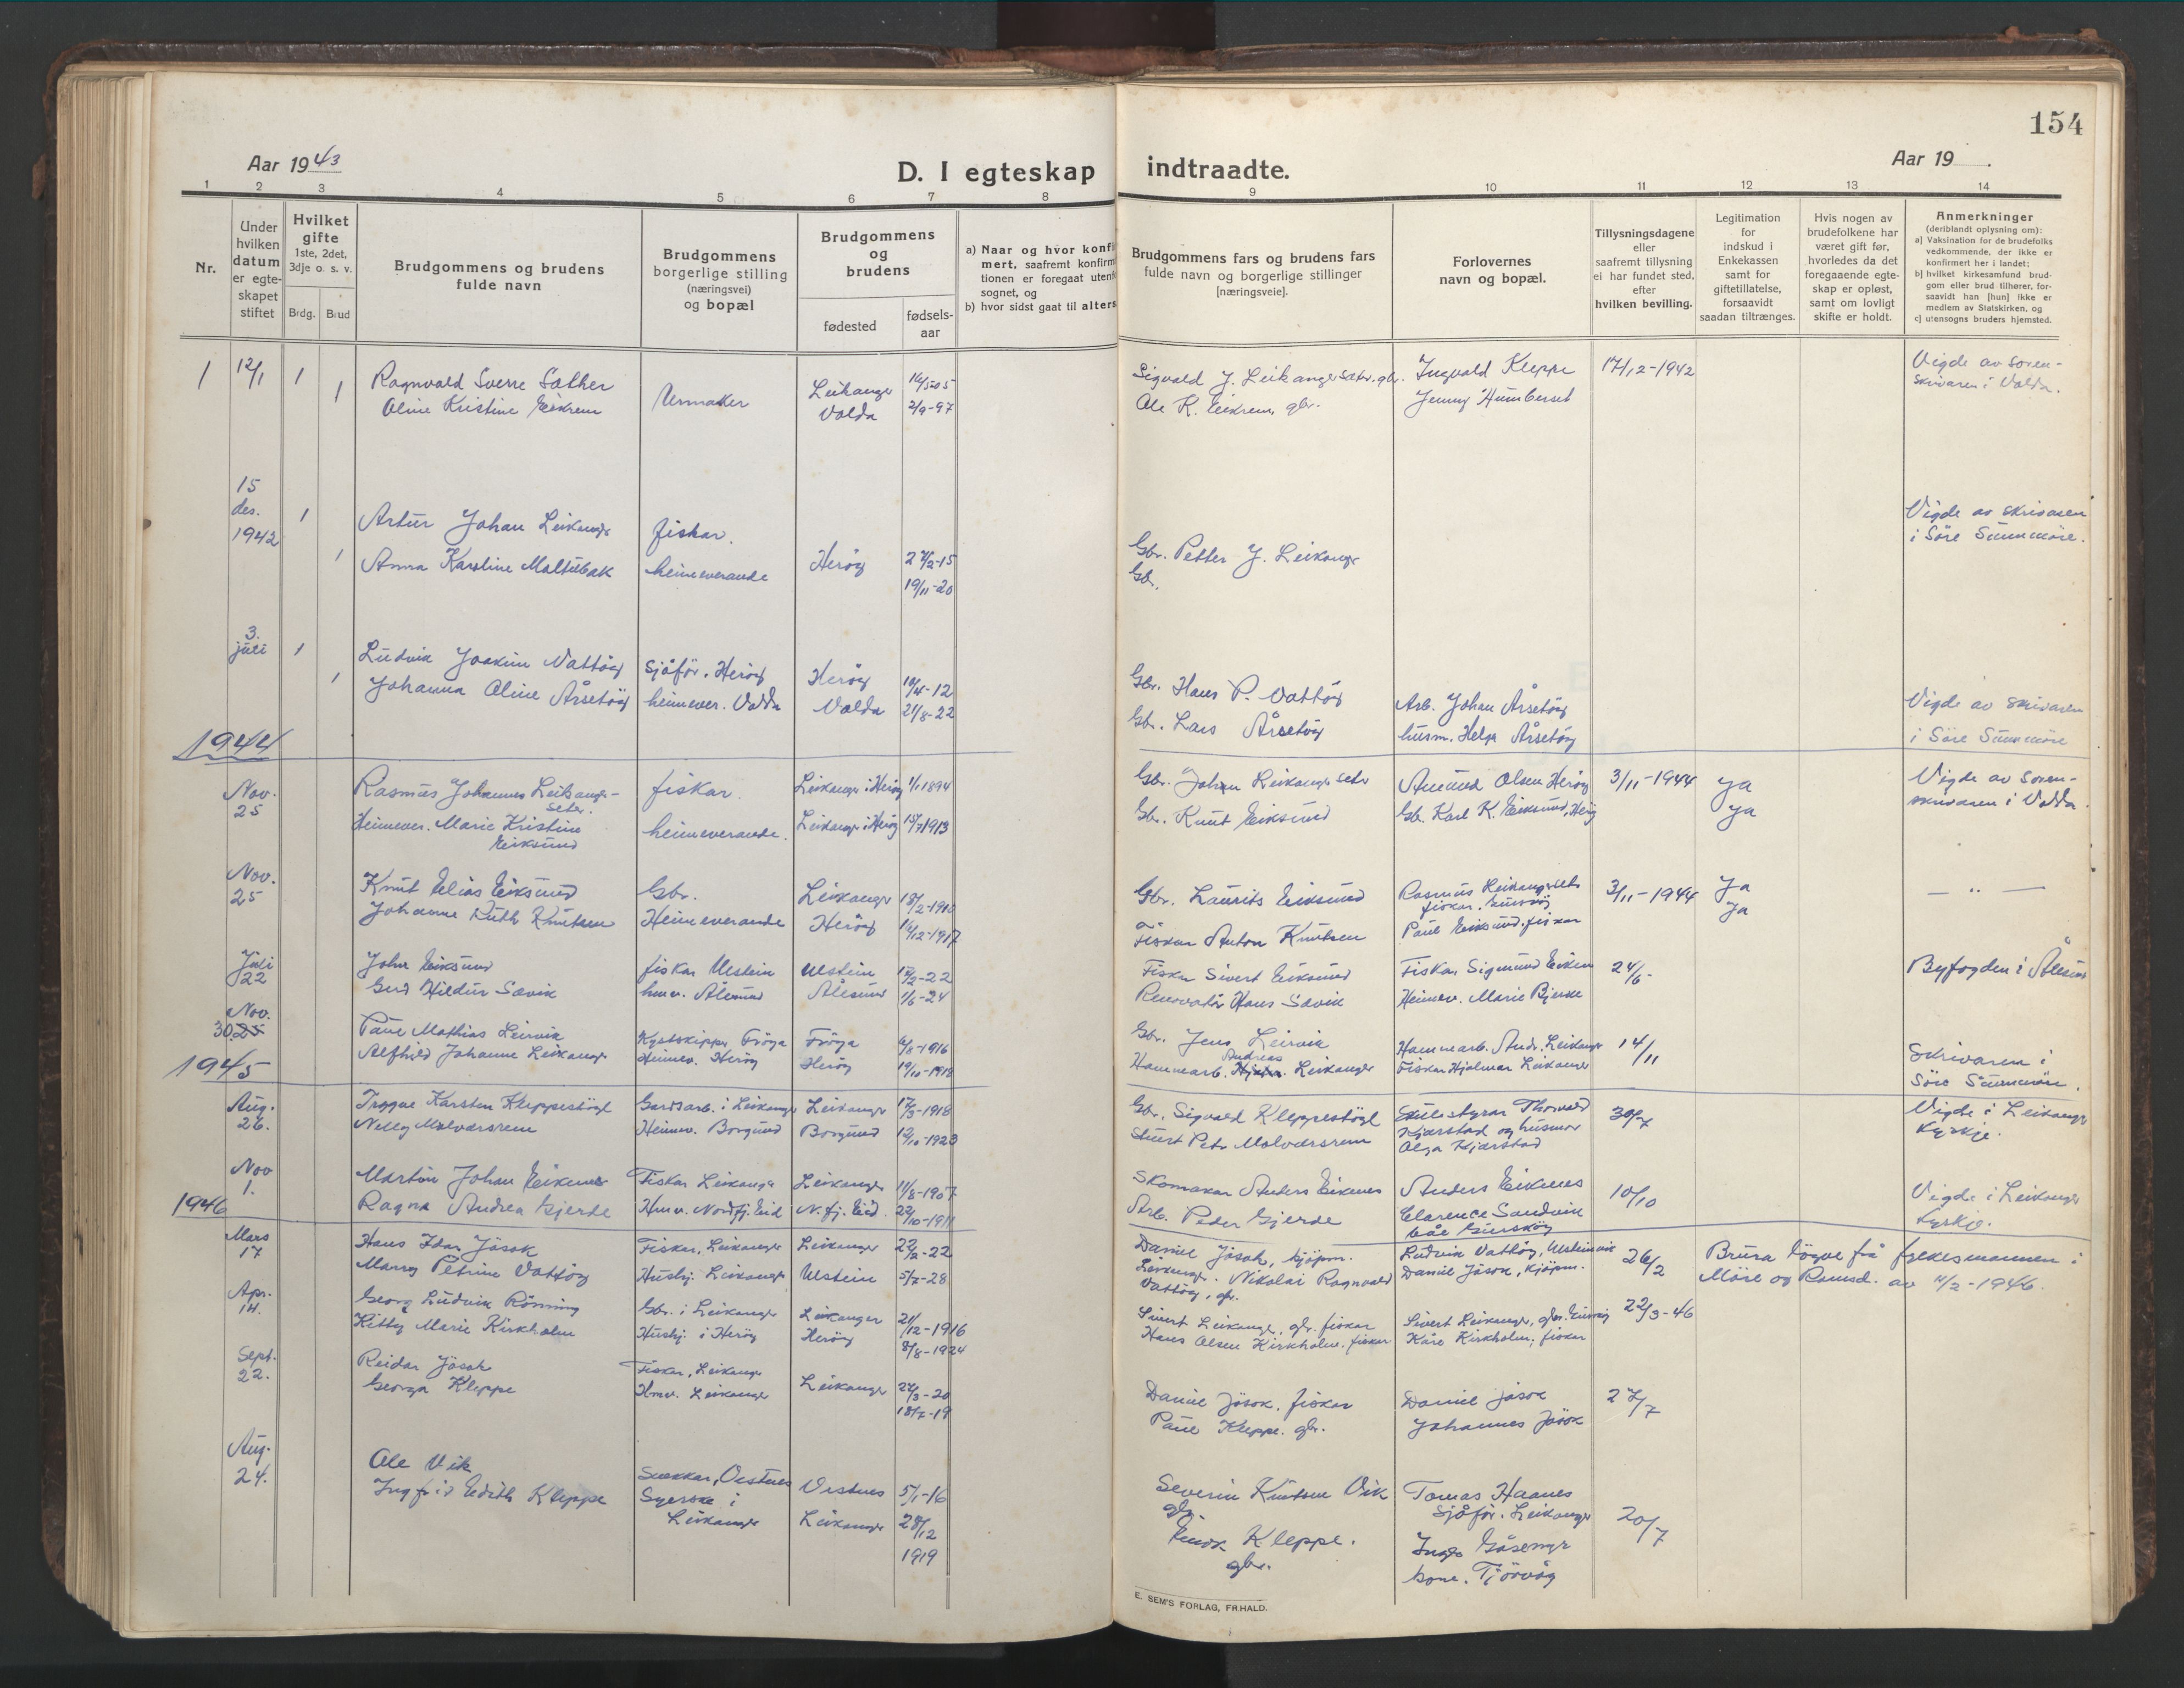 154
Aar 1943
D. I egteskap indtraadte.
Aar 19 .
1 2 3 4 5 6 7 8 9 10 11 12 13 14
Nr.
Under hvilken datum er egte- skapet stiftet
Hvilket gifte 1ste, 2det, 3dje o. s. v.
Brdg. Brud
Brudgommens og brudens fulde navn
Brudgommens borgerlige stilling (næringsvei) og bopæl
Brudgommens og brudens
fødested
fødsels- aar
a) Naar og hvor konfi
mert, saafremt konfirm
tionen er foregaat utenf
sognet, og
b) hvor sidst gaat til alters
Brudgommens fars og brudens fars
fulde navn og borgerlige stillinger
[næringsveie].
Forlovernes
navn og bopæl.
Tillysningsdagene
eller
saafremt tillysning
ei har fundet sted,
efter
hvilken bevilling.
Legitimation
for
indskud i
Enkekassen
samt for
giftetillatelse,
forsaavidt
saadan tiltrænges.
Hvis nogen av
brudefolkene har
været gift før,
hvorledes da det
foregaaende egte-
skap er opløst,
samt om lovligt
skifte er holdt.
Anmerkninger
(deriblandt oplysning om):
a) Vaksination for de brudefolks
vedkommende, der ikke er
konfirmert her i landet;
b) hvilket kirkesamfund brud-
gom eller brud tilhører, for-
saavidt han [hun] ikke er
medlem av Statskirken, og
c) utensogns bruders hjemsted.
1 12/1 1 Ragnvald Sverre Sæther Urmaker Leikanger 16/5-05 Sigvald J. Leikangersæter. gbr. Ingvald Kleppe 17/12-1942 Vigde av soren-
1 Oline Kristine Eikrem Volda 2/9-97 Ole K. Eikrem, gbr. Jenny Humberset skrivaren i Volda.
15
des. 1 Artur Johan Leikanger fiskar. Gbr. Petter J. Leikanger Vigde av skrivaren
1942 1 Anna Karoline Moltubak heimeverande Herøy 27/2-15 Gbr. i Søre Sunnmøre.
19/11-20
3.
juli 1 Ludvik Joakim Vattøy Sjåfør. Herøy Herøy 10/4-12 Gbr. Hans P. Vattøy Arb. Johan Årsetøy Vigde av skrivaren
1 Johanna Oline Årsetøy heimever. Volda Volda 21/8-22 Gbr. Lars Årsetøy husm. Helga Årsetøy i Søre Sunnmøre
1944
Nov. Rasmus Johannes Leikanger- fiskar. Leikanger i Herøy 1/1 1894 Gbr. Johan Leikangerseter Amund Olsen Herøy 3/11-1944 Ja Vigde av soren-
25 seter.
Heimever. Marie Kristine heimeverande. Leikanger i Herøy 15/7 1913 Gbr. Knut Eiksund Gb. Karl K. Eiksund, Herøy ja skrivaren i Volda.
Eiksund
Nov. Knut Elias Eiksund Gbr. Leikanger 18/2-1910 Gbr. Laurits Eiksund Rasmus Leikangerseter 3/11-1944 Ja — " —
25 fiskar. Gurskøy
Johanne Ruth Knutsen Heimeverande Herøy 16/12-1917 Fiskar Anton Knutsen Paul Eiksund, fiskar Ja
Juli John Eiksund fiskar Ulstein Ulstein Fiskar Sivert Eiksund Fiskar Sigmund 24/6 Byfogden i Ålesund
22 Gerd Hildur Sævik hmv. Ålesund Ålesund 1/6-24 Hans Sævik Heimev. Marie Bjerke
Nov.
30. 25 Paul Mathias Leirvik Kystskipper Frøya Frøya 6/8-1916 Gbr. Jens Leirvik Hammarb. Andr. Leikanger 14/11 Skrivaren i
Alfhild Johanne Leikanger Heimev. Herøy Herøy 19/10-1918 Hammarb. Andreas Leikanger Fiskar Hjalmar Leikanger Søre Sunnmøre.
1945
Aug. Tryggve Karsten Kleppestøyl Gardsarb. i Leikanger Leikanger 17/3-1918 Gbr. Sigvald Kleppestøyl Skulestyrar Thorvald 30/7 Vigde i Leikanger
26. Nelly Molværsrem Heimev. Borgund Borgund 12/10-1923 Petr Molværsrem Kjærstad og husmor kyrkje.
Olga Kjærstad
Nov Martin Johan Eikenes Fiskar Leikanger Leikanger 11/8-1907 Skomakar Anders Eikenes Anders Eikenes 10/10 Vigde i Leikanger
1. Ragna Andrea Gjerde Hmv. Nordfj. Eid N.fj. Eid 22/10-1911 Arb. Peder Gjerde Clarence Sandvik kyrkje.
båe Gurskøy
1946
Mars Hans Idar Jøsok Fiskar, Leikanger Leikanger 22/2-22 Daniel Jøsok, kjøpm. Ludvik Vattøy, Ulsteinvik 26/2 Brura løyve frå fylkesmannen i
17 Marry Petrine Vattøy Hushj. Leikanger Ulstein 5/7-28 Leikanger. Nikolai Ragnvald Daniel Jøsok, kjøpm. Møre og Romsd. av 11/2-1946.
Vattøy, gbr.
Apr. Georg Ludvik Rønning Gbr. i Leikanger Leikanger 21/12-1916 Sivert Leikanger, gbr. fiskar Sivert Leikanger, gbr. Gurskøy 22/3-46
14. Kitty Marie Kirkholm Hushj. i Herøy Herøy 8/8-1924 Hans Olsen Kirkholm. fiskar Kåre Kirkholm, fiskar
Sept. Reidar Jøsok Fiskar, Leikanger Leikanger 27/3-20 Daniel Jøsok, fiskar Daniel Jøsok 27/7
22. Georga Kleppe Hmv. Leikanger 18/7-19 Paul Kleppe. gbr. Johannes Jøsok
Aug. Ole Vik Snekkar, Vestnes Vestnes 5/1-16 Severin Knutsen Vik Tomas Haanes 20/7
24. Ingfrid Edith Kleppe Syerske i Leikanger 28/12 gbr. Sjåfør. Leikanger
Leikanger 1919 Kleppe.
gbr. kone. Tjørvåg
E. SEM'S FORLAG, FR.HALD.